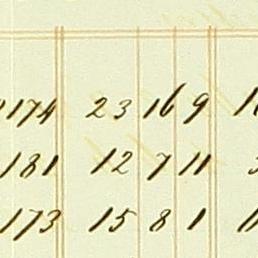 174 23 16 9
181 12 7 11
173 15 8 1